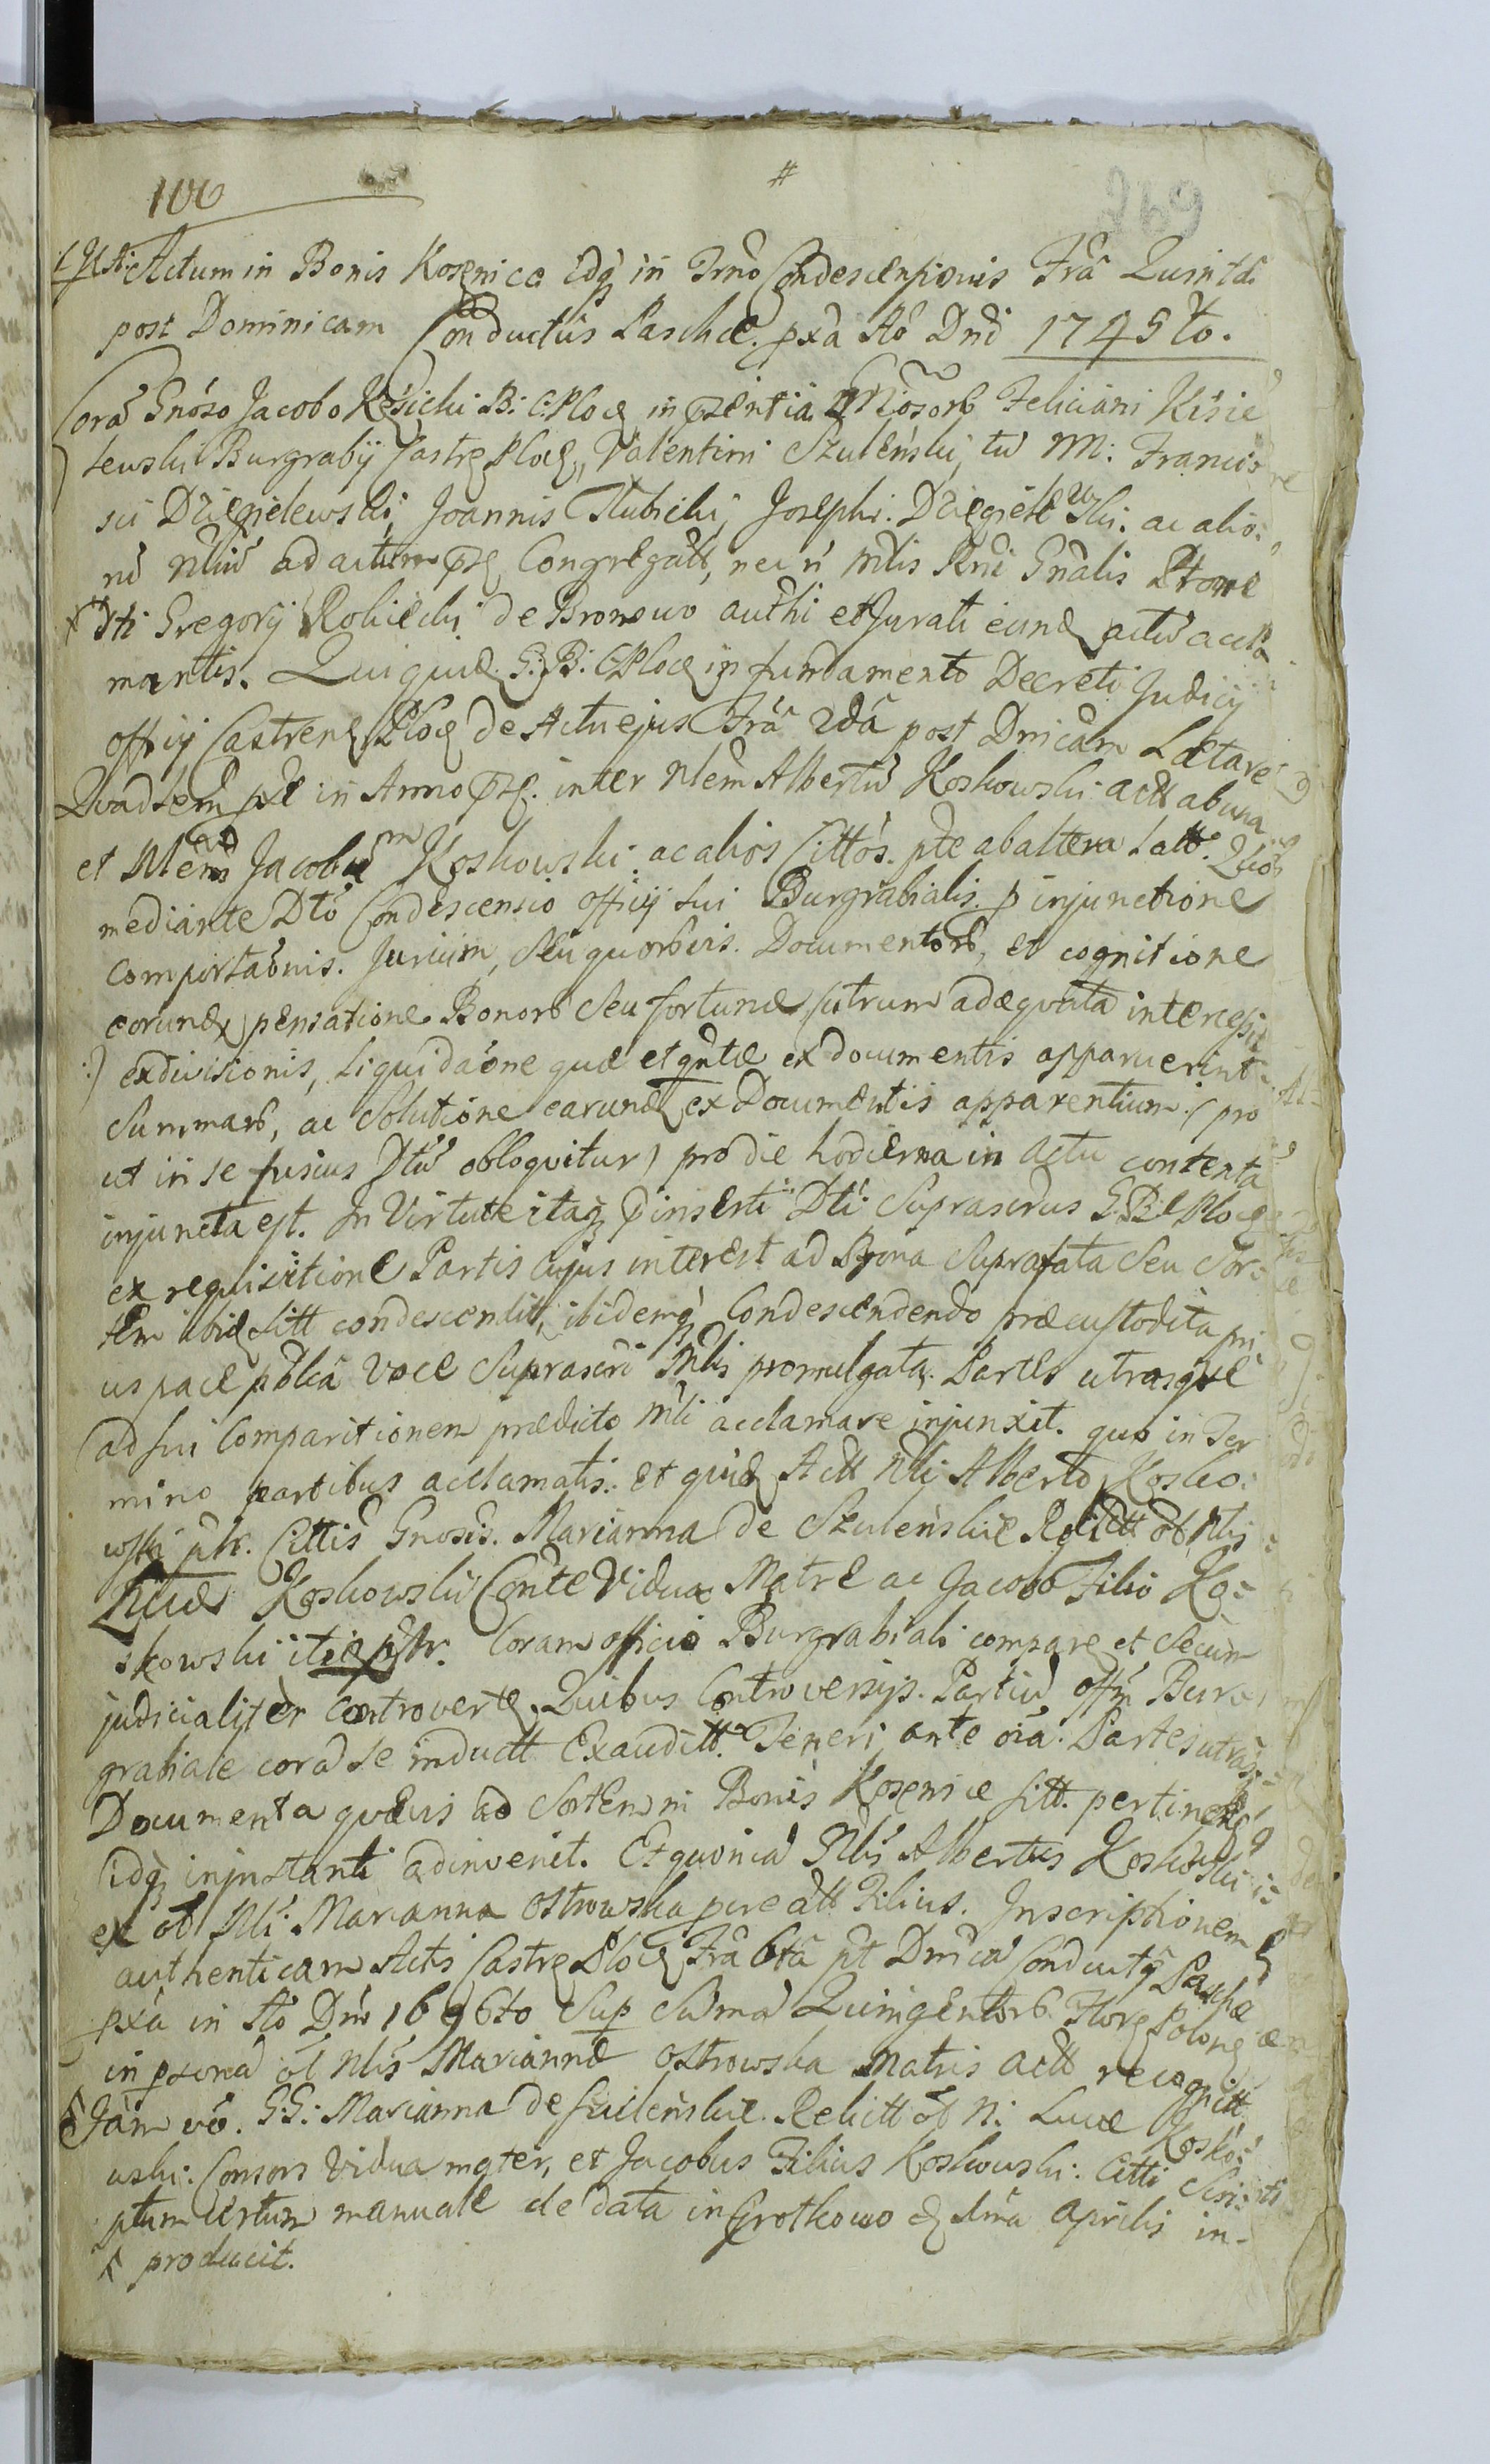 100 # 269
Actum in Bonis Kosenice idq in Trno Condescensionis Fra Quinta
post Dominicam Conductus Paschæ. pxa Ao Dni 1745to.
Corã Gnoso Jacobo Kęsicki B: C: Ploc in psentia Gnosorb Feliciani Kisie
lewski Burgrabij Castr Ploc, Valentini Szulenski, tũ M: Francis
sci Dzięgielewski, Joannis Slubicki, Josephi Dzięgielewski: ac alio:
rũ Nliũ ad actum ps Congregatt, nec ñ Mlis Rni Gnalis Ptone
Dti Gregorij Rokicki de Bronowo authi et Jurati eund actũ accla
mantis. Qui quid G: B: C Ploc in fundamento Decreti Judicij
officij Castren Ploc de Actu ejus Fra 2da post Dnicam Lætare
Quadsem pxe in Anno ps. inter Nlem Albertũ Koskowski actt ab una
et Nlem Jacobum Koskowski ac alios Cittos. pte ab altera latt. Quo
mediante Dto Condescensio officij sui Burgrabialis. p injunctione
comportaonis. Jurium, seu quorbvis. Documentorb, et cognitione
eorund pensatione Bonorb seu fortunæ (utrum adæquata intercessit
:) exdivisionis, liquidaone quæ et qntæ ex documentis apparuerint
Summarb, ac Solutione earund ex Documentis apparentium (pro
ut in se fusius Dtũ obloquitur) pro die hodierna in actu contenta
injuncta est. In Virtute itaq pinserti Dti Suprascrus G. B. C Ploc
ex requisitione Partis cujus interest ad Bona Suprafata Seu Sor:
tem ibid sitt condescendit, ibidemq Condescendendo præcustodita pri
us pace pblca voce Suprascri Mlis promulgata. Partes utrasque
ad sui Comparitionem prædicto Mli acclamare injunxit. quo in Ter
mino partibus acclamatis: et quid Actt Nli Alberto Kosko:
wski plr. Cittis Gnosis. Marianna de Szulenskie Relictt ob Nlis
Lucæ Koskowski Conte Vidua Matre ac Jacobo Filio Ko:
skowski itid plr. Coram officio Burgrabiali compare et Secum
judicialiter controverte. Quibus Controversijs. Partiũ offm Bur
grabiale corã se inductt Exauditt. Teneri ante oia. Partes utras:
Documenta quævis ad Sortem in Bonis Kosenice sitt. pertinen
idq injnstanti adinvenit. Et quoniã Nlis Albertus Koskowski
ex ob Nli Marianna Ostrowska pcreatt Filius. Inscriptionem
authenticam Actis Castr Ploc Fra 6ta pt Dnica Conductq Paschæ
pxa in Ao Dni 1696to Sup Sumã Quingentorb Flor Polonæ
in psona ol Nlis Mariannæ Ostrowska Matris actt recognitt
Jam vo. GG: Marianna de Szulenskie. Relictt ob N: Lucæ Kosko:
wski: Consors Vidua mater, et Jacobus Filius Koskowski: Citti Scri:
ptum certum manuale de data in Grotkowo d 1ma Aprilis in-
producit.